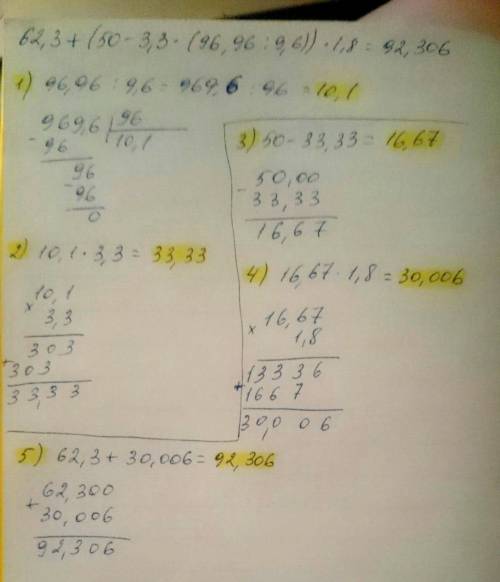 62,3 + (50 - 3,3 · (96,96 : 9,6)) · 1,8 = 92,306
1) 96,96 : 9,6 = 969,6 : 96 = 10,1
969,6 | 96
- 96 | 10,1
96
- 96
0
2) 10,1 · 3,3 = 33,33
10,1
× 3,3
303
+ 303
33,33
3) 50 - 33,33 = 16,67
- 50,00
33,33
16,67
4) 16,67 · 1,8 = 30,006
16,67
× 1,8
13336
+ 1667
30,006
5) 62,3 + 30,006 = 92,306
62,300
+ 30,006
92,306